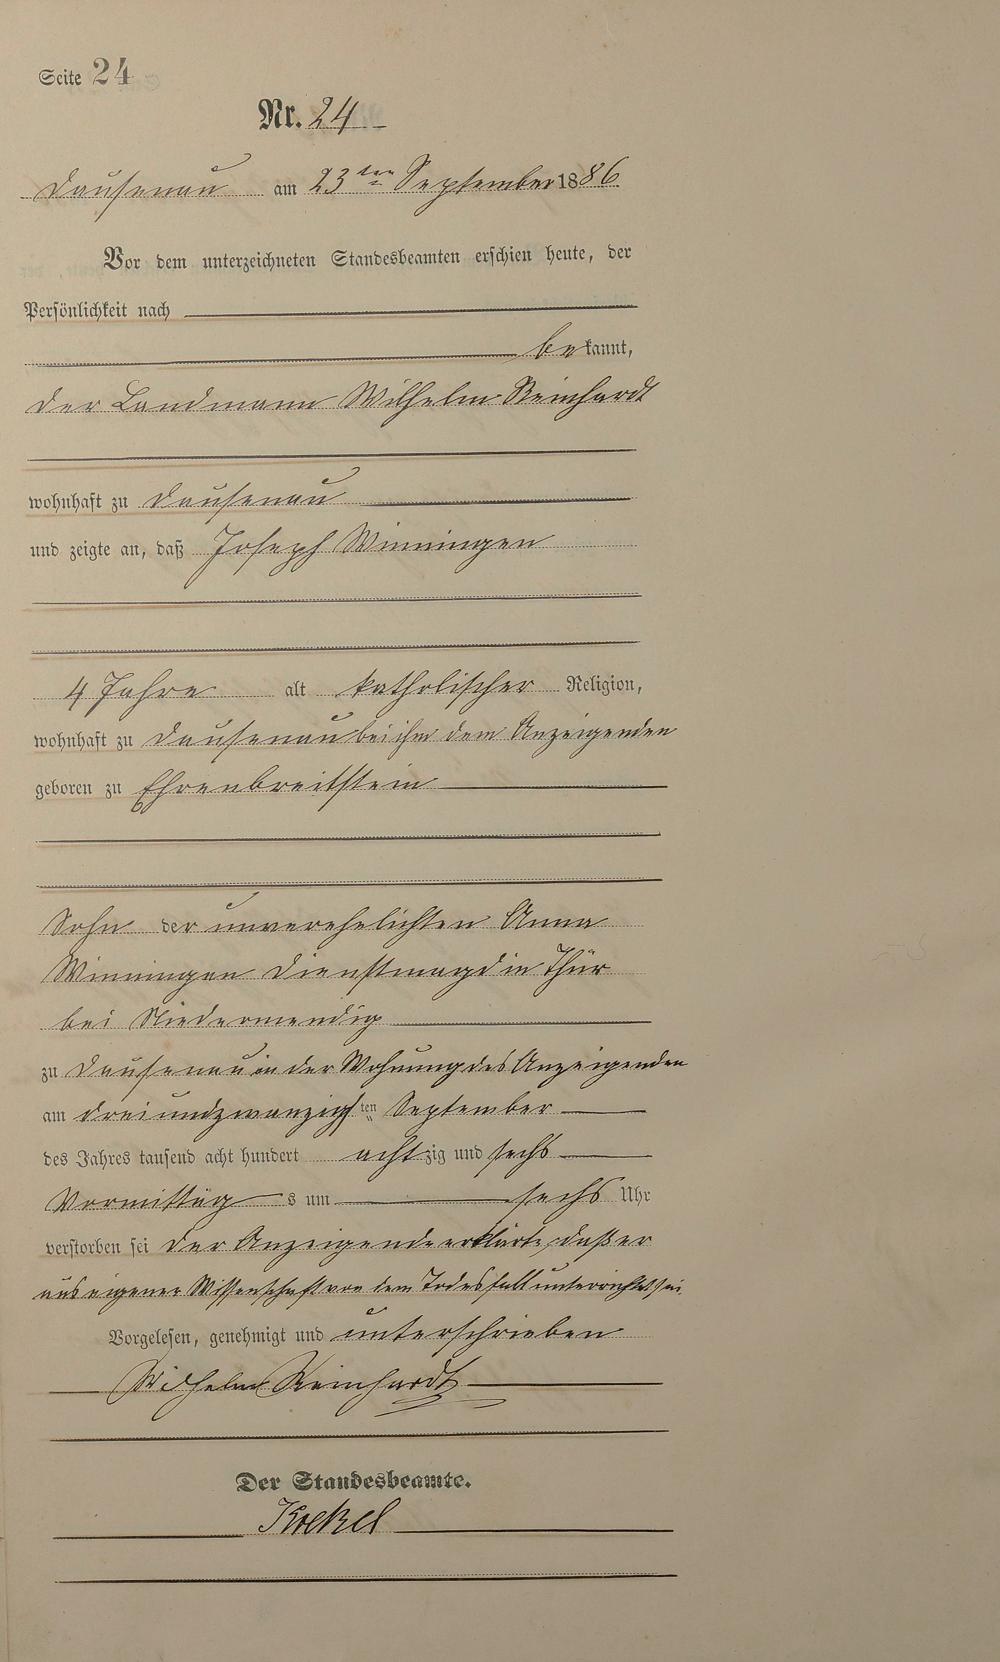 Seite 24
Nr. 24
Dausenau am 23ten September 1886
Vor dem unterzeichneten Standesbeamten erschien heute, der
Persönlichkeit nach
bekannt,
der Landmann Wilhelm Reinhardt
wohnhaft zu Dausenau
und zeigte an, daß Joseph Winningen
4 Jahre alt katholischer Religion,
wohnhaft zu Dausenau bei ihm dem Anzeigenden
geboren zu Ehrenbreitstein
Sohn der unverehelichten Anna
Winningen Dienstmagd in Thür
bei Niedermendig
zu Dausenau in der Wohnung des Anzeigenden
am dreiundzwanzigsten September
des Jahres tausend acht hundert achtzig und sechs
Vormittags um sechs Uhr
verstorben sei der Anzeigende erklärte, daß er
aus eigener Wissenschaft von dem Todesfall unterrichtet sei.
Vorgelesen, genehmigt und unterschrieben
Wilhelm Reinhardt
Der Standesbeamte.